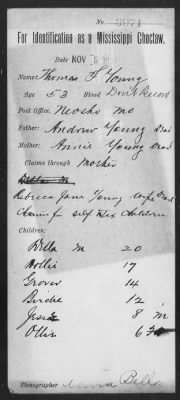 No. 3971
For Identification as a Mississippi Choctaw.
Date NOV
Name: Thomas F Young
Age 53 Blood Don't Know
Post Office, Neosho Mo
Father: Andrew Young Dead
Mother: Annie Young Dead
Claims through Mother
Della M
Rebecca Jane Young wife Dead
Claims for self & six children
Children:
Della M 20
Hollis 17
Grover 14
Birdie 12
Jesse 8 m
Ollie 6
Stenographer Bell